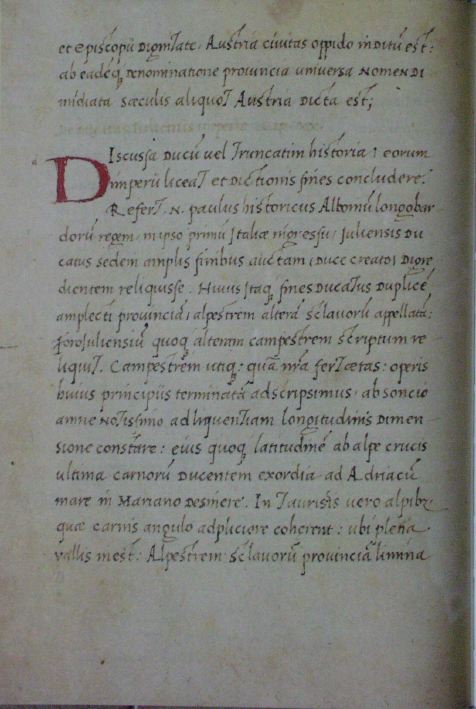 et episcopii Dignitate, Austria civitas oppido inditū est:
ab eadēq; Denominatione provincia universa NOMEN DI
midiata sæculis aliquot Austria Dicta est;
Discussa Ducū vel Truncatim historia, eorum
imperii liceat et Dictionis fines concludere.
Refert. N. paulus historicus Alboinū longobar
dorū regem, in ipso primū Italiæ ingressu, Juliensis Du
catus sedem amplis finibus auctam, Duce creato,
dientem reliquisse. Huius Itaq; fines Ducatus Duplicē
amplecti provinciā, alpestrem alterā sclavorū appellatā;
forojuliensiū quoq; alteram campestrem scriptum re
liquit. Campestrem utiq; quā nr̄a fert ætas: operis
huius principiis terminatā adscripsimus, ab soncio
amne notissimo ad liquentiam longitudinis Dimen
sione constare: eius quoq; latitudinē ab alpe crucis
ultima carnorū Ducentem exordia ad Adriacū
mare in Mariano Desinere. In Tauris̄is vero alpibz
quæ carnis angulo coherent: ubi pleria
vallis inest. Alpestrem sclavorū provinciā limina